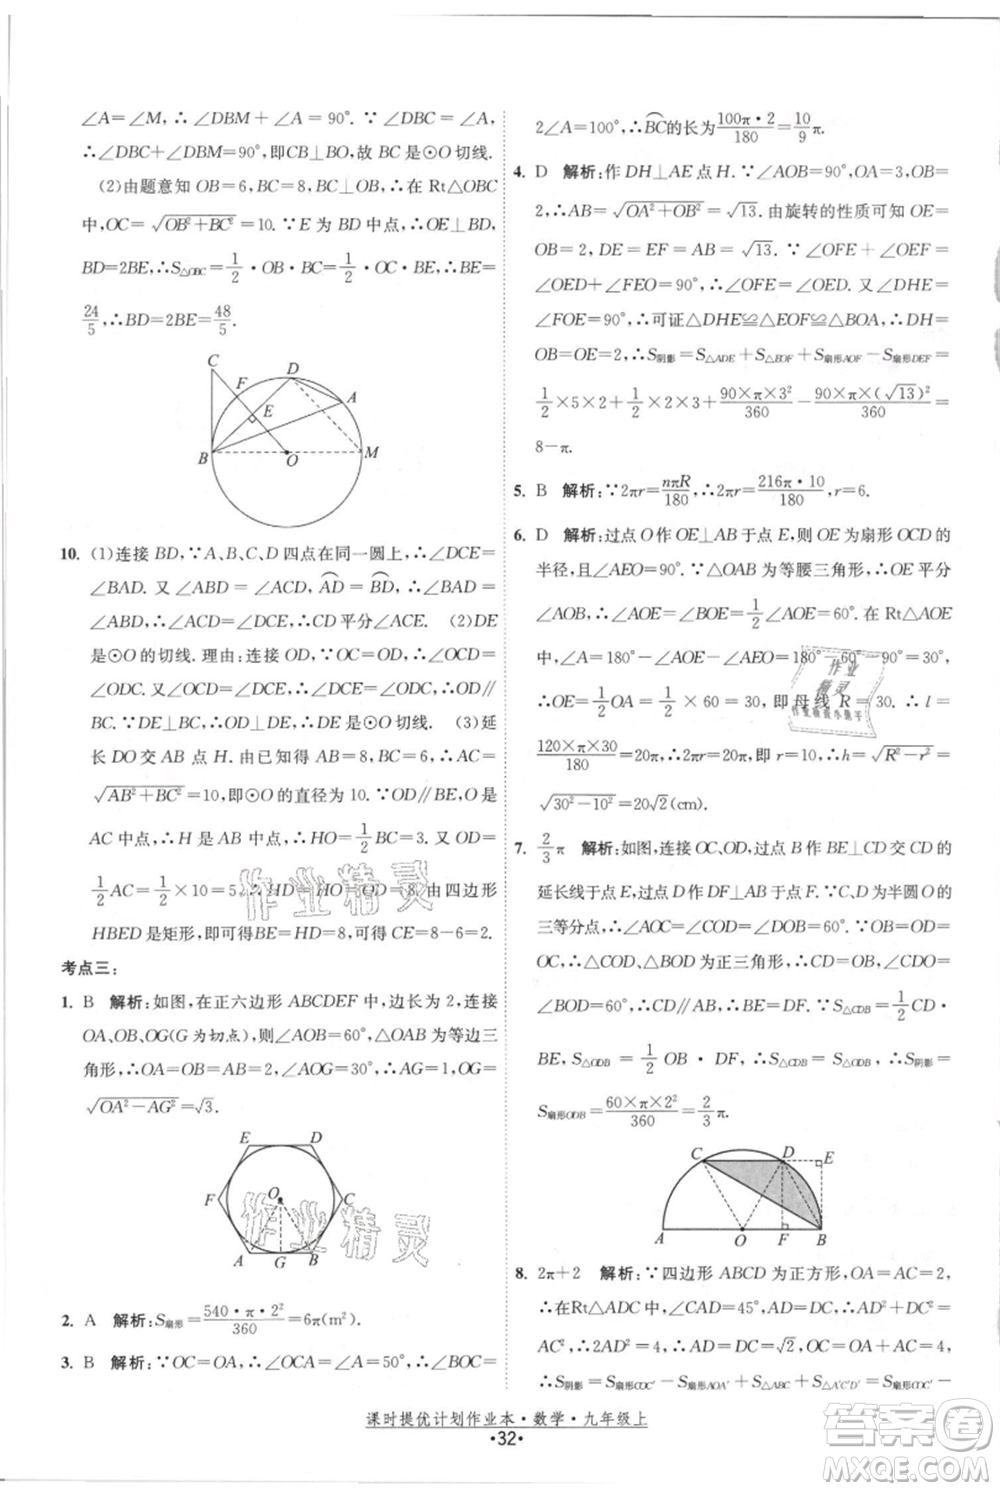 ∠A=∠M, ∴∠DBM+∠A=90°. ∵∠DBC=∠A,
∴∠DBC+∠DBM=90°,即CB⊥BO,故 BC是⊙O切线.
(2)由题意知OB=6,BC=8,BC⊥OB,∴在 Rt△OBC
中,OC=√(OB²+BC²)=10. ∵E 为 BD 中点,∴OE⊥BD,
BD=2BE,∴S△OBC=1/2·OB·BC=1/2·OC·BE,∴BE=
24/5,∴BD=2BE=48/5.
C F D A E B O M
10. (1)连接 BD,∵A、B、C、D 四点在同一圆上,∴∠DCE=
∠BAD. 又∠DBA=∠ACD, AD=BD, ∴∠DBA=
∠BAD. ∴∠ACD=∠DCE,∴CD平分∠ACE. (2)DE
是⊙O 的切线. 理由:连接 OD,∵OC=OD,∴∠OCD=
∠ODC. 又∠OCD=∠DCE,∴∠ODC=∠DCE,∴OD∥
BE. ∵DE⊥BC,∴DE⊥OD,∴DE为⊙O的切线. (3)延
长 DO 交 AB 点 H. ∵AB=8, BC=6, ∴AC=
√(AB²+BC²)=10,即⊙O 的直径为 10. ∵OD∥BE,O 是
AC中点,∴H 是 AB 中点,∴HO=1/2BC=3. 又 OD=
1/2AC=1/2×10=5,∴HD=HO+OD=8. 由四边形
HBED是矩形,即可得BE=HD=8,可得 CE=8-6=2.
考点三:
1. B 解析:如图,在正六边形ABCDEF中,边长为2,连接
OA,OB,OG(G为切点),则∠AOB=60°,△OAB为等边三
角形,∴OA=OB=AB=2,∠AOG=30°,∴AG=1,∴OG=
√(OA²-AG²)=√3.
E D F O C A G B
2. A 解析:S扇形=540·π·2²/360=6π(m²).
3. B 解析:∵OC=OA,∴∠OCA=∠A=50°,∴∠BOC=
2∠A=100°,∴BC的长为100π·2/180=10/9π.
4. D 解析:作 DH⊥AE点 H. ∵∠AOB=90°,OA=3,OB=
2,∴AB=√(OA²+OB²)=√13. 由旋转的性质可知 OE=
OB=2, DE=EF=AB=√13. ∵∠OFE+∠OEF=
∠OED+∠FEO=90°, ∴∠OFE=∠OED. 又∠DHE=
∠FOE=90°,∴可证△DHE≌△EOF≌△BOA,∴DH=
OB=OE=2,∴S阴影=S△ADE+S△EOF+S扇形AOF-S扇形DEF=
1/2×5×2+1/2×2×3+90×π×3²/360-90×π×(√13)²/360=
8-π.
5. B 解析:∵2πr=nπR/180,∴2πr=216π·10/180,r=6.
6. D 解析:过点O作OE⊥AB于点E,则OE为扇形OCD的
半径,∠AEO=90°. ∵△OAB为等腰三角形,∴OE平分
∠AOB,∴∠AOE=∠BOE=1/2∠AOB=60°. 在 Rt△AOE
中,∠A=180°-∠AOE-∠AEO=180°-60°-90°=30°,
∴OE=1/2OA=1/2×60=30,即母线 R=30. ∴l=
120×π×30/180=20π. ∴2πr=20π,即r=10,∴h=√(R²-r²)=
√(30²-10²)=20√2(cm).
7. 2/3π 解析:如图,连接OC、OD,过点 B 作BE⊥CD 交 CD 的
延长线于点E,过点D作DF⊥AB于点F. ∵C、D为半圆O的
三等分点,∴∠AOC=∠COD=∠DOB=60°. ∵OC=
OD,∴△COD为正三角形,∴OC=CD=OB,∠CDO=
∠BOD=60°,∴CD∥AB,∴BE=DF. ∵S△CDB=1/2CD·
BE,S△ODB=1/2OB·DF,∴S△CDB=S△ODB,∴S阴影=
S扇形ODB=60×π×2²/360=2/3π.
C D E A O F B
8. 2π+2 解析:∵四边形 ABCD 为正方形,OA=AC=2,
∴在Rt△ADC 中,∠CAD=45°,∴AD²+DC²=
2AD²=4,∴AD=DC=√2,∴OC=OA+AC=4,
∴S阴影=S扇形COC′-S扇形AOA′+S△ABC+S△A′C′D′-S扇形AOA′=
课时提优计划作业本·数学·九年级上
·32·
作业精灵
作业精灵
作业
精灵
答案圈
MXQE.COM